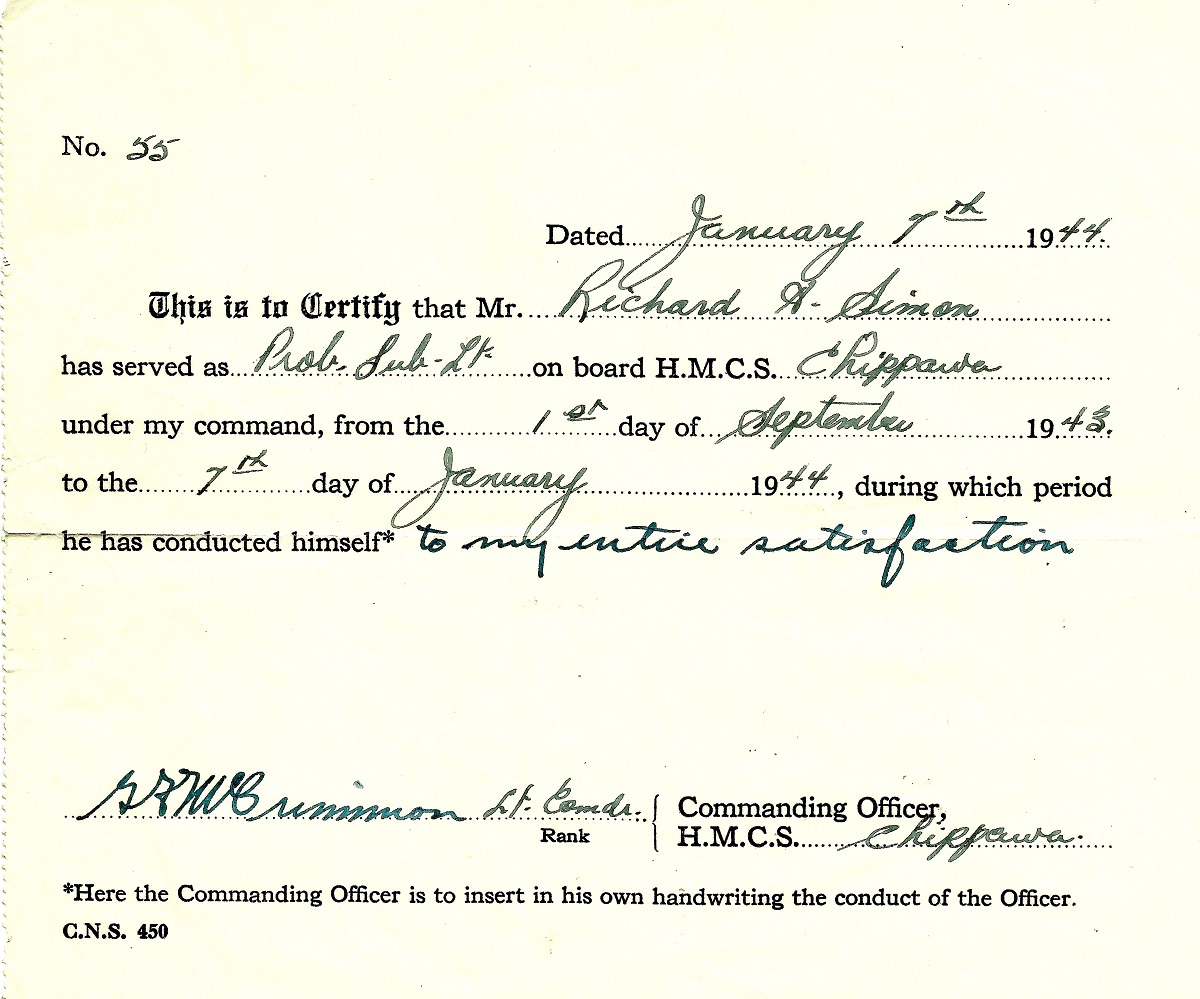 No. 55
Dated January 7th 1944.
This is to Certify that Mr. Richard A. Simon
has served as Prob. Sub-Lt. on board H.M.C.S. Chippawa
under my command, from the 1st day of September 1943.
to the 7th day of January 1944, during which period
he has conducted himself* to my entire satisfaction
McCrimmon Lt. Comdr. Commanding Officer,
Rank H.M.C.S. Chippawa.
*Here the Commanding Officer is to insert in his own handwriting the conduct of the Officer.
C.N.S. 450